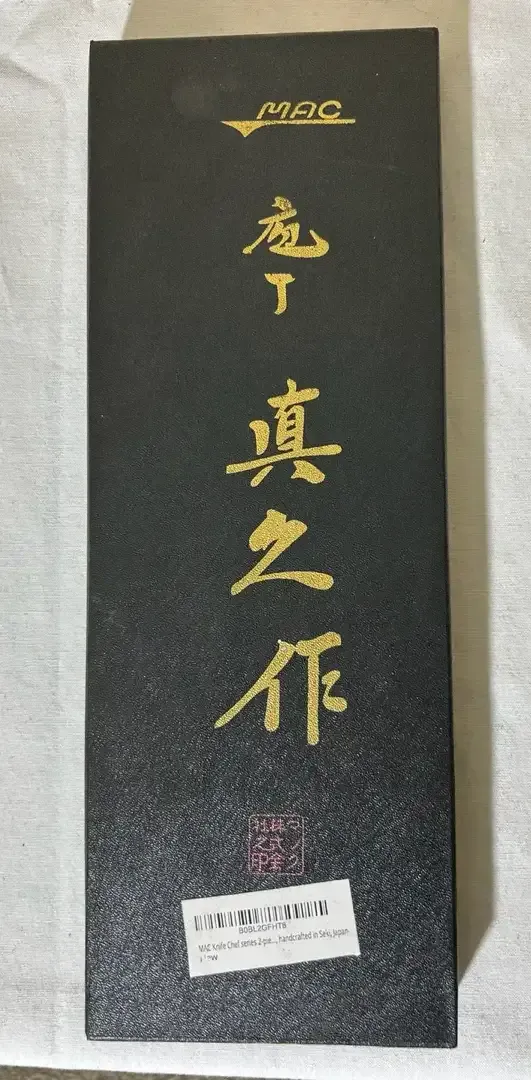 MAC
庖丁
真之作
マック
株式会
社之印
B0BL2GFHT8
MAC Knife Chef series 2-pie..., handcrafted in Seki, Japan